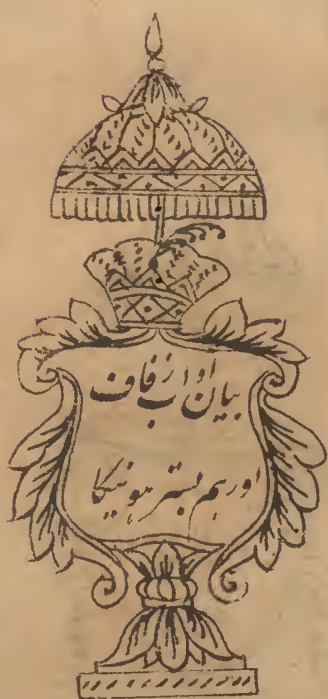 بیان آداب زفاف
اور ہم بستر ہونیکا